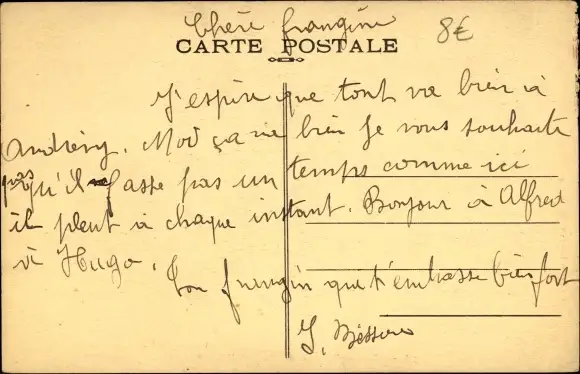 Chère frangine
8€
CARTE POSTALE
J'espère que tout va bien à
Andrésy. Moi ça va bien Je vous souhaite
pas qu'il fasse pas un temps comme ici
il pleut à chaque instant. Bonjour à Alfred
à Hugo.
Ton frangin qui t'embrasse bien fort